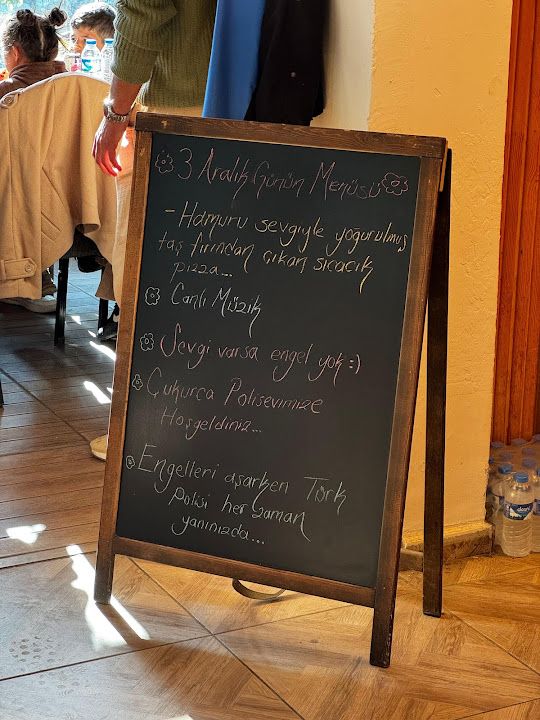 3 Aralık Günün Menüsü
- Hamuru sevgiyle yoğurulmuş
taş fırından çıkan sıcacık
pizza...
Canlı Müzik
Sevgi varsa engel yok :)
Çukurca Polisevimize
Hoşgeldiniz...
Engelleri aşarken Türk
Polisi her zaman
yanınızda...